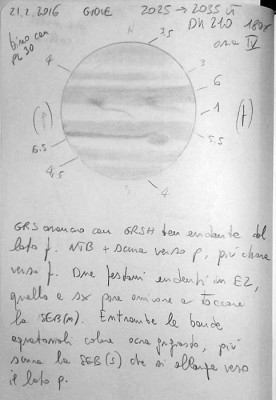 21.2.2016 GIOVE 2025 → 2035 UT
DK 210 180x
bino con
PL 30
ant IV
N
3.5
4
3
6
1
(P)
(f)
5.5
6.5
4.5
4
S
GRS arancio con GRSH ben evidente dal
lato f. NTB + scura verso p, più chiara
verso f. Due festoni evidenti in EZ,
quello a sx pare arrivare a toccare
la SEB(N). Entrambe le bande
equatoriali colore ocra grigiastro, più
scura la SEB(S) che si allarga verso
il lato p.